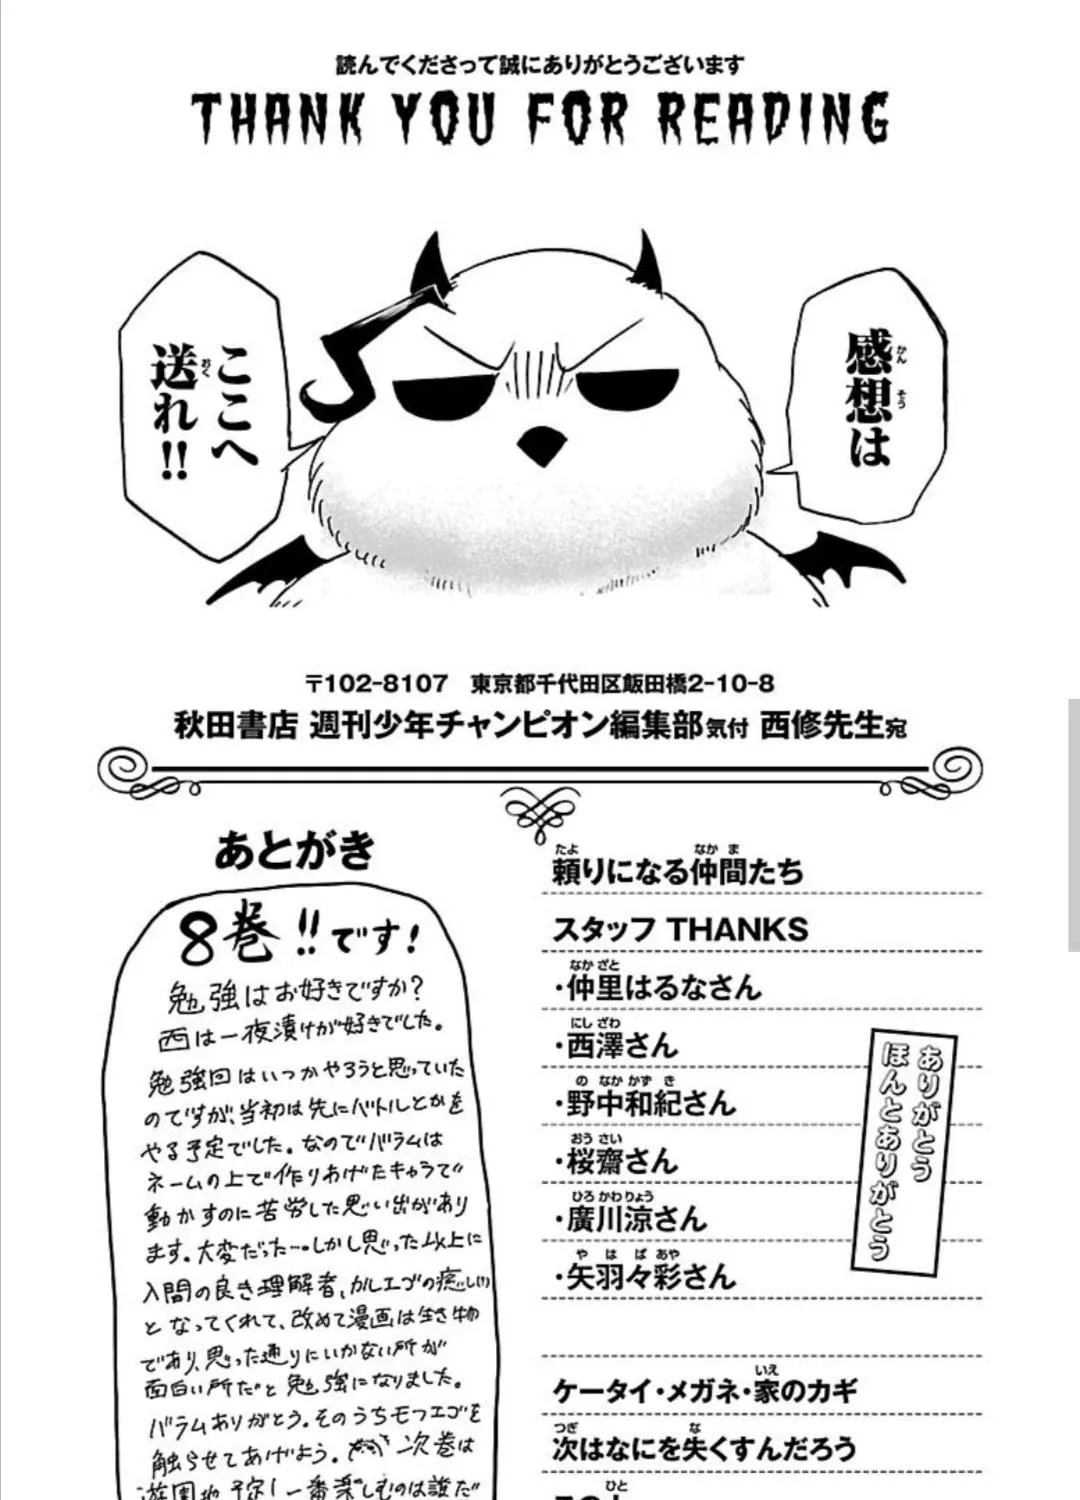 読んでくださって誠にありがとうございます
THANK YOU FOR READING
感想は
かん そう
ここへ
送れ!!
おく
〒102-8107　東京都千代田区飯田橋2-10-8
秋田書店 週刊少年チャンピオン編集部気付 西修先生宛
あとがき
8巻!!です!
勉強はお好きですか?
西は一夜漬けが好きでした。
勉強回はいつかやろうと思っていた
のですが、当初は先にバトルとかを
やる予定でした。なのでバラムは
ネームの上で作りあげたキャラで
動かすのに苦労した思い出があり
ます。大変だった…。しかし思った以上に
入間の良き理解者、カルエゴの癒しい
となってくれて、改めて漫画は生き物
であり、思った通りにいかない所が
面白い所だと勉強になりました。
バラムありがとう。そのうちモフエゴを
触らせてあげよう。次巻は
遊園地予定!一番楽しむのは誰だ
たよ なか ま
頼りになる仲間たち
スタッフ THANKS
なか ざと
・仲里はるなさん
にし ざわ
・西澤さん
の なか かず き
・野中和紀さん
おう さい
・桜齋さん
ひろ かわ りょう
・廣川涼さん
や は ば あや
・矢羽々彩さん
ありがとう
ほんとありがとう
いえ
ケータイ・メガネ・家のカギ
つぎ な
次はなにを失くすんだろう
ひと